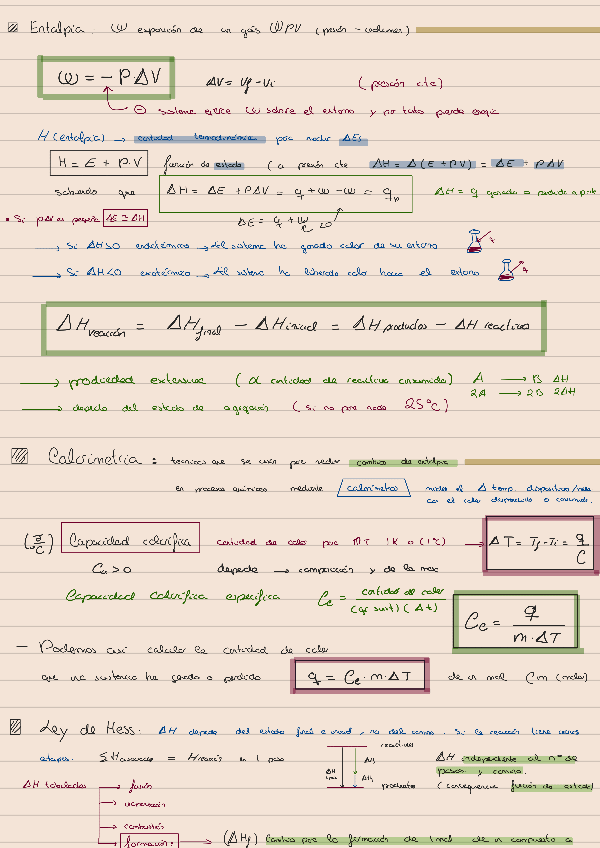 Entalpia. W expansión de un gas W PV (presión - volumen)
W = - P ΔV
ΔV = Vf - Vi (presión cte)
⊖ sistema ejerce W sobre el entorno y por tanto pierde energía
H (entalpia) → cantidad termodinámica por medir ΔEs
H = E + P·V función de estado (a presión cte ΔH = Δ(E + PV) = ΔE + PΔV
sabiendo que ΔH = ΔE + PΔV = q + w - w = qp ΔH = q ganado o perdido a p cte
ΔE = q + w
• Si PΔV es pequeño ΔE ≅ ΔH
→ Si ΔH>0 endotérmico → el sistema ha ganado calor de su entorno
→ Si ΔH<0 exotérmico → el sistema ha liberado calor hacia el entorno
ΔH reacción = ΔH final - ΔH inicial = ΔH productos - ΔH reactivos
→ propiedad extensiva (α cantidad de reactivo consumida) A → B ΔH
2A → 2B 2ΔH
→ depende del estado de agregación (si no pone nada 25ºC)
Calorimetria: técnicas que se usan por medir cambios de entalpia
en procesos químicos mediante calorímetros
(J/C) Capacidad calorífica cantidad de calor por ↑T 1K o (1ºC) → ΔT = Tf - Ti = q/C
Ca > 0 depende → composición y de la masa
Capacidad Calorífica específica Ce = cantidad de calor / (gr sust) (Δt)
Ce = q / m·ΔT
- Podemos así calcular la cantidad de calor
que una sustancia ha ganado o perdido q = Ce·m·ΔT de un mol Cm (molar)
Ley de Hess. ΔH depende del estado final e inicial, no del camino. Si la reacción tiene varias
etapas. Σ H = H reacción en 1 paso
reactivos
ΔH independiente al nº de
pasos y camino.
productos (consecuencia función de estado)
ΔH tabulados → fusión
→ vaporización
→ combustión
→ formación: → (ΔHf) Cambio por la formación de 1 mol de un compuesto a